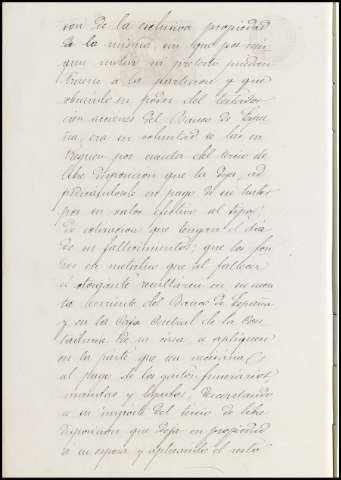 son de la exclusiva propiedad
de la misma, sin que por nin
gun motivo ni pretexto puedan
traerse a la particion y que
obrando en poder del testador
cien acciones del Banco de Espa
ña, era su voluntad se las en
treguen por cuenta del tercio de
libre disposicion que la deja, ad
judicandosele en pago de su haber
por su valor efectivo al tipo
de cotizacion que tengan el dia
de su fallecimiento; que los fon
dos en metalico que al fallecer
el otorgante resultaren en su cuen
ta corriente del Banco de España
y en la Caja Central de la
de su casa, se apliquen
en la parte que sea necesaria
al pago de los gastos funerarios,
mandas y legados, decretando
su importe del tercio de libre
disposicion que deja en propiedad
a su esposa y aplicando el resto